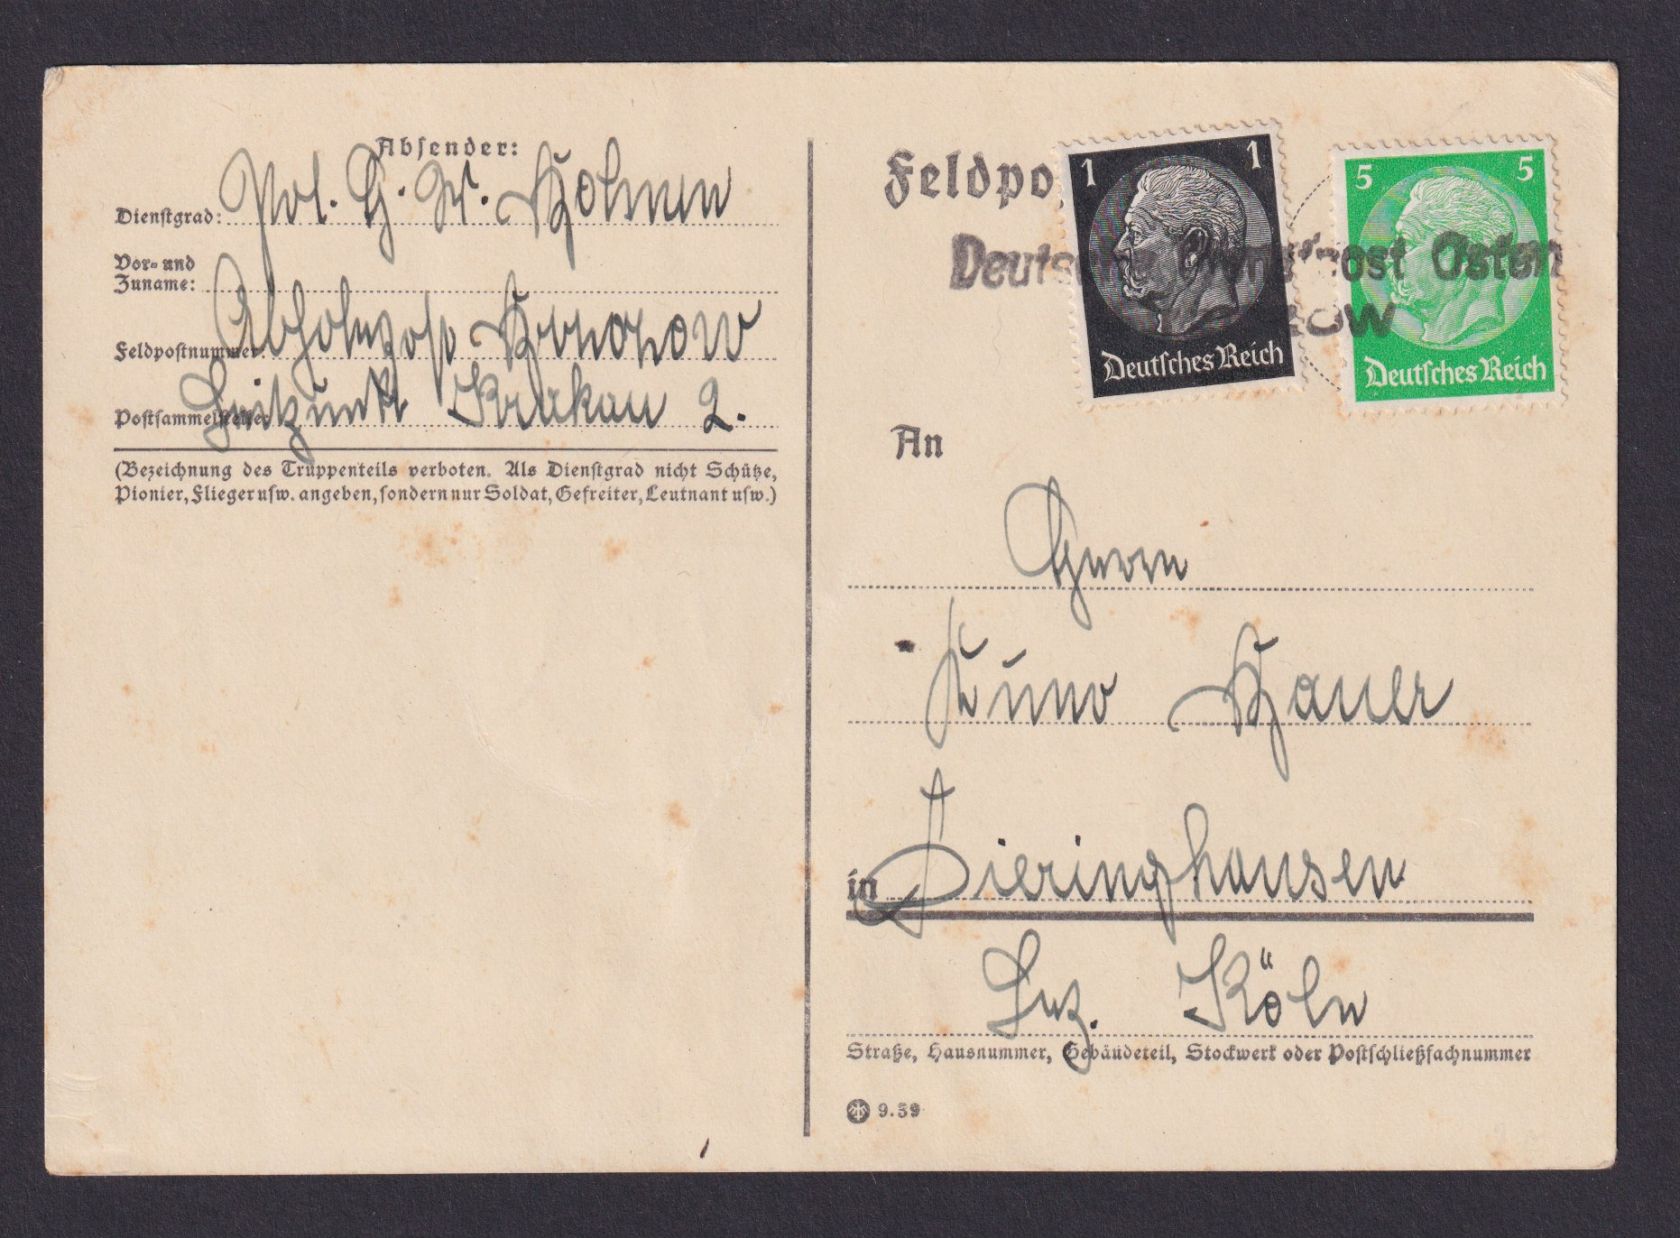 Absender:
Dienstgrad:
Vor- und
Zuname:
Feldpostnummer:
Leitpunkt Krakau 2.
Postsammelstelle:
(Bezeichnung des Truppenteils verboten. Als Dienstgrad nicht Schütze,
Pionier, Flieger usw. angeben, sondern nur Soldat, Gefreiter, Leutnant usw.)
Feldpo
1 1
Deutsches Reich
5 5
Deutsches Reich
Deutsche Dienstpost Osten
ow
An
Herrn
Kuno
in Dieringhausen
Bez. Köln
Straße, Hausnummer, Gebäudeteil, Stockwerk oder Postschließfachnummer
9.39